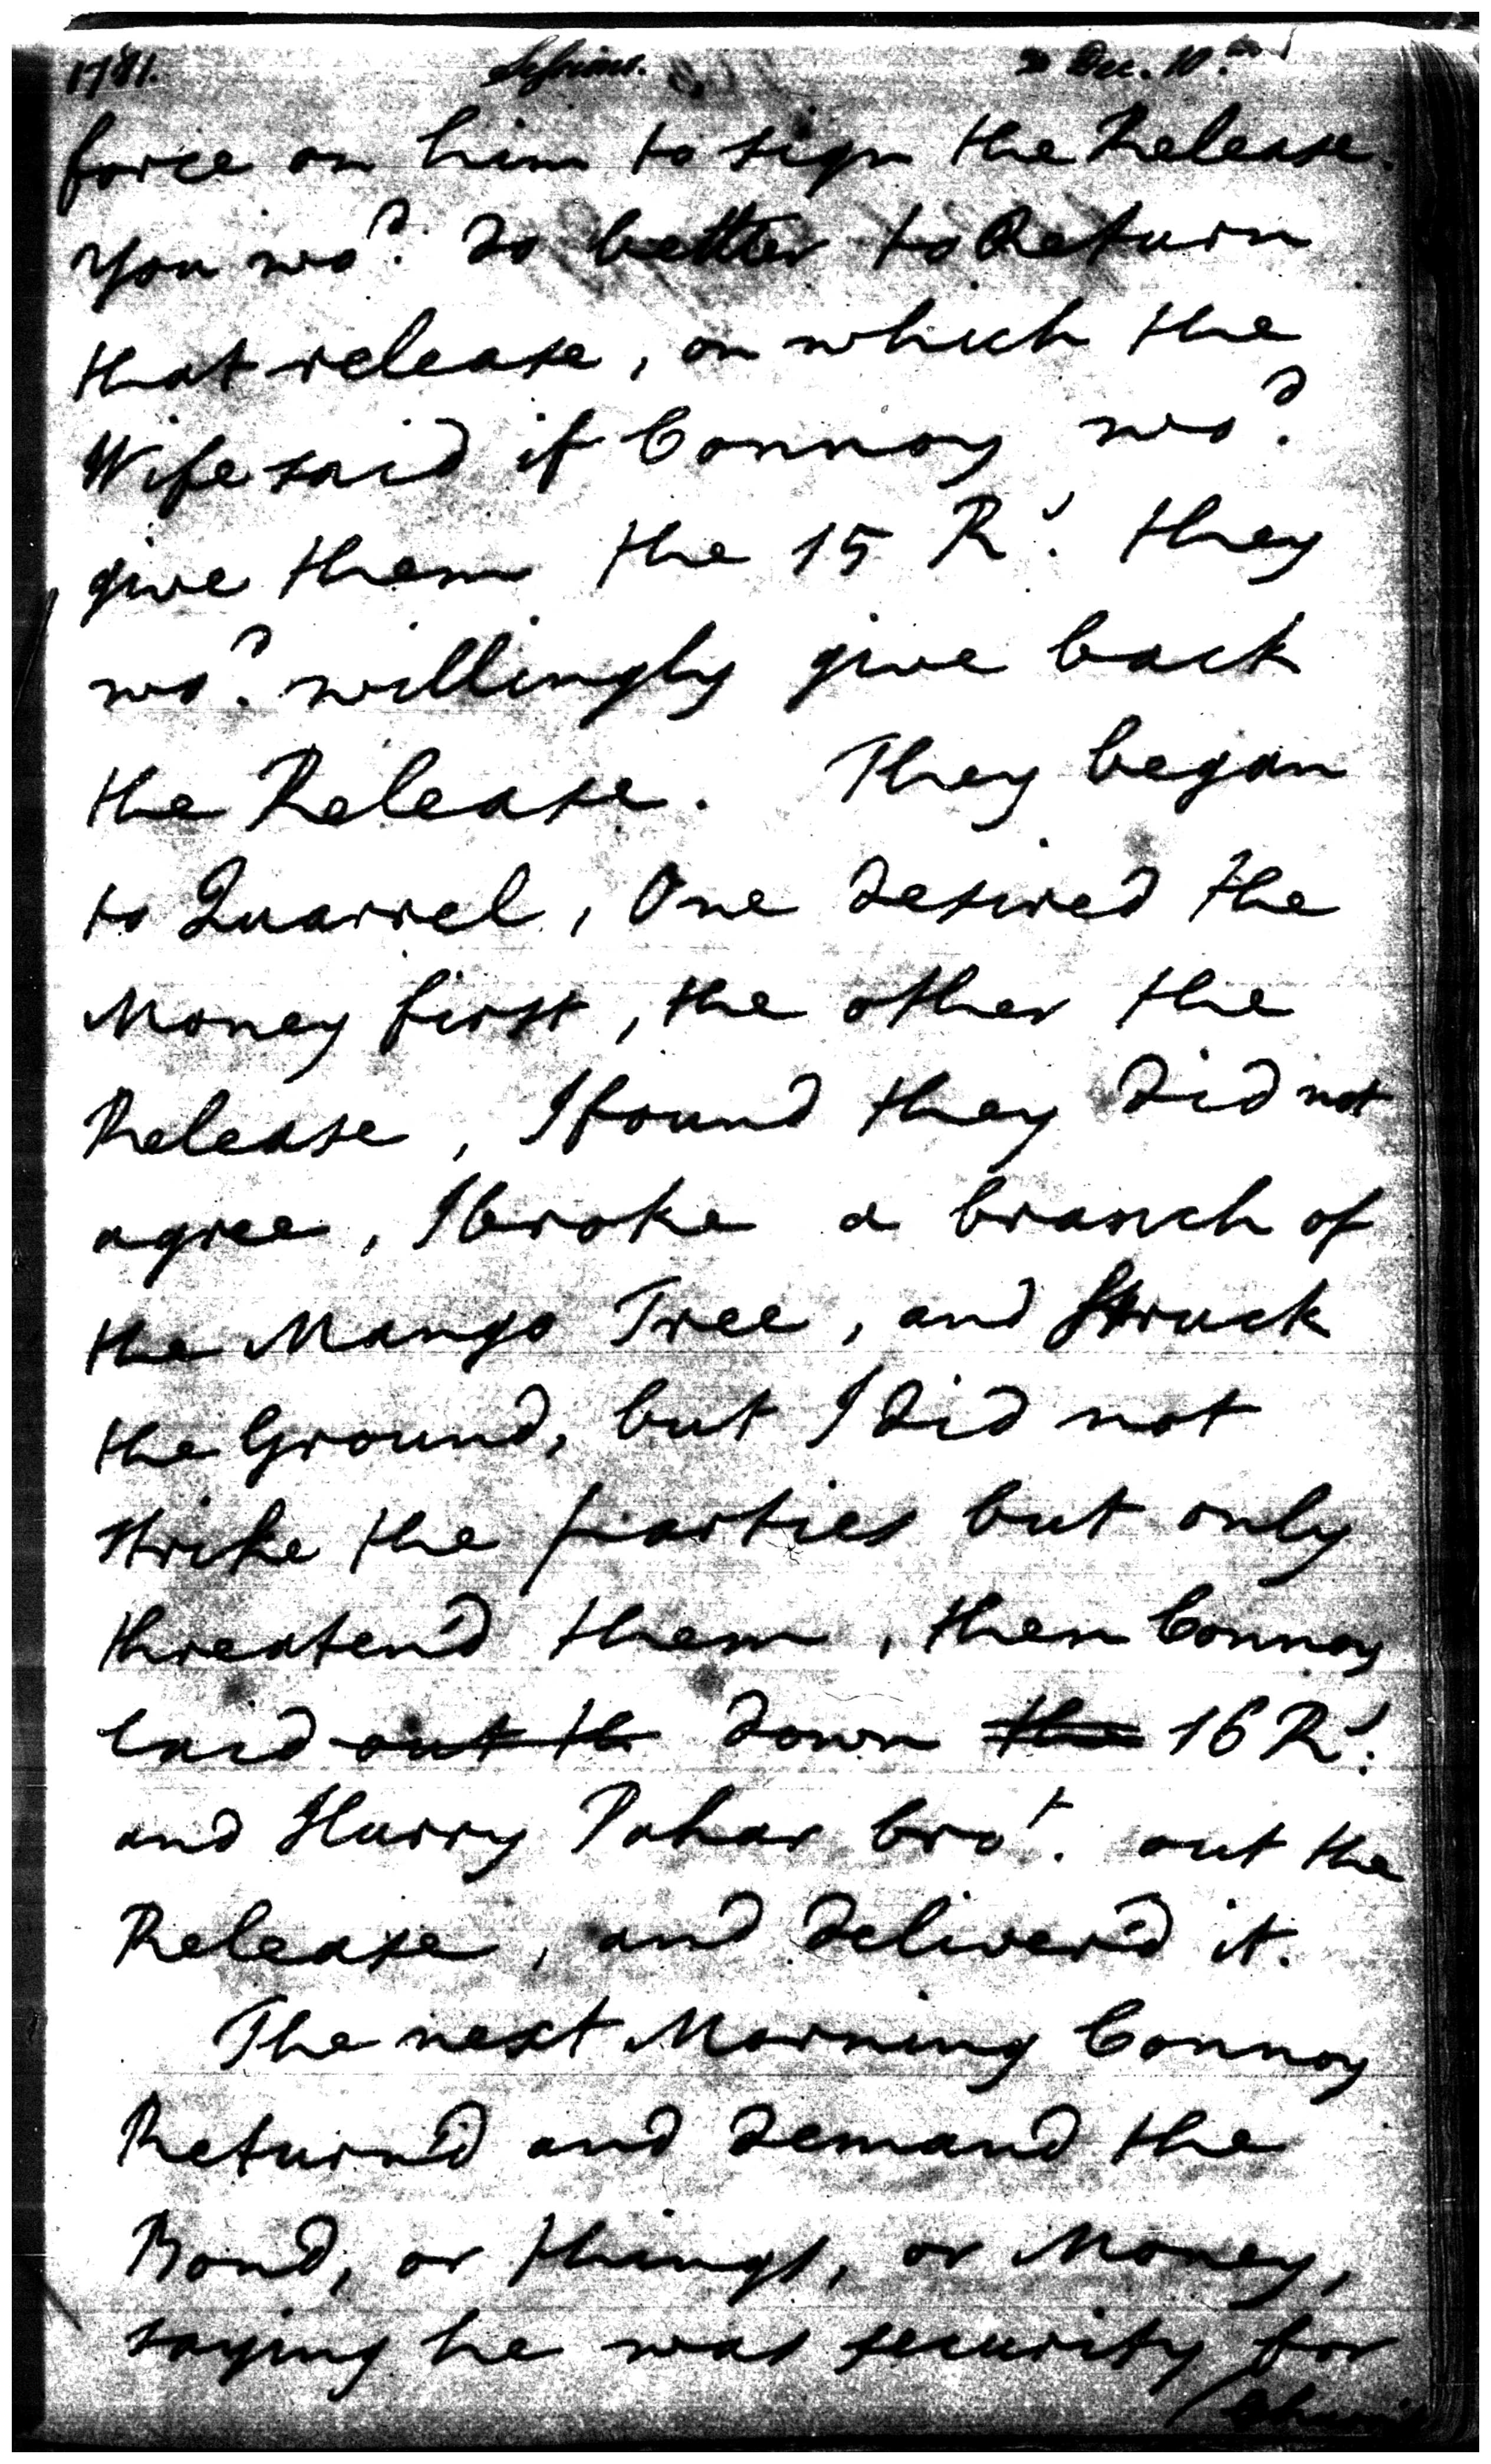 1781. Sessions. Dec. 10.th
force on him to sign the Release.
You wod. do better to Return
that release, on which the
Wife said if Connoy wod.
give them the 15 Rs. they
wod. willingly give back
the Release. They began
to Quarrel, One desired the
Money first, the other the
Release, I found they did not
agree, I broke a branch of
the Mango Tree, and Struck
the Ground, but I did not
strike the parties but only
threaten'd them, then Connoy
laid out th down the 16 Rs.
and Hurry Pohar brot. out the
Release, and deliver'd it.
The next Morning Connoy
Return'd and demand the
Bond, or things, or Money,
saying he was security for